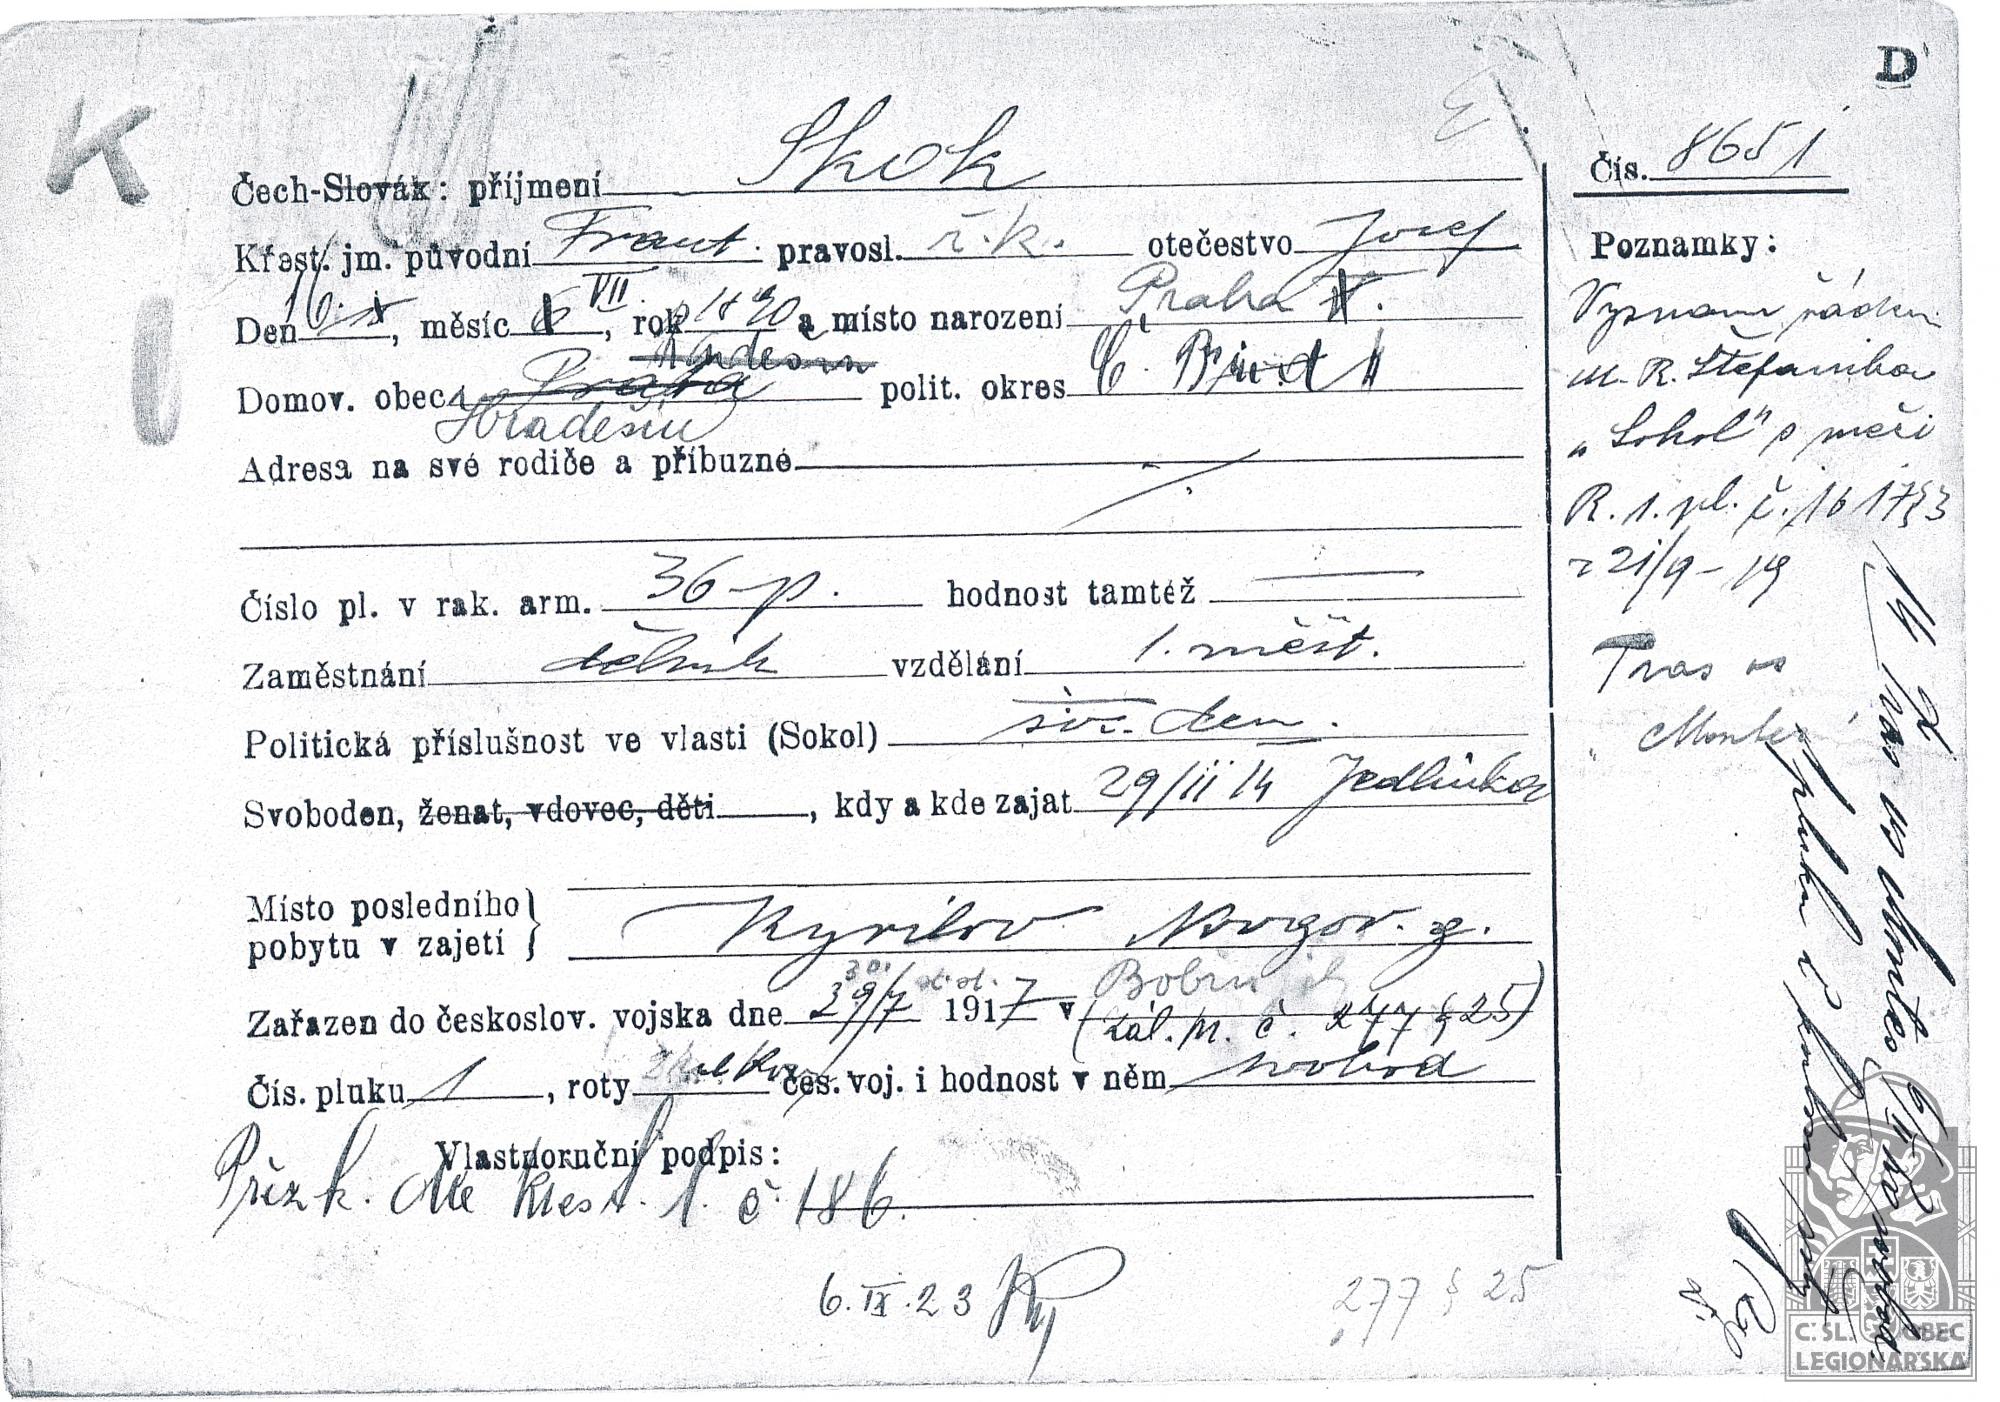 D
K
Čech-Slovák: příjmení Skok
Čís. 8651
Křest. jm. původní Frant. pravosl. ř.k. otečestvo Josef
Poznamky:
Den 16., měsíc VII, rok 1890 a místo narození Praha
Domov. obec Praha polit. okres Č. Brod
Hradešín
Adresa na své rodiče a příbuzné
Číslo pl. v rak. arm. 36 p. hodnost tamtéž
Zaměstnání dělník vzdělání 1. měšt.
Politická příslušnost ve vlasti (Sokol) soc. dem.
Svoboden, ženat, vdovec, děti, kdy a kde zajat 29/11 14 Jedlinka
Místo posledního pobytu v zajetí } Kyrilov Novgor. g.
30/
Zařazen do českoslov. vojska dne 29/7 1917 v
(zál. M. č. 277 § 25)
Čís. pluku 1, roty čes. voj. i hodnost v něm svobod
Vlastnoruční podpis:
Přezk. dle kmest. l. č. 186.
6. IX. 23
277 § 25
Vyznam. řádem
M. R. Štefanika
„Sokol" s meči
R. 1. pl. č. 161 § 3
z 21/9 - 19
Tras os
Č. SL. OBEC
LEGIONÁŘSKÁ